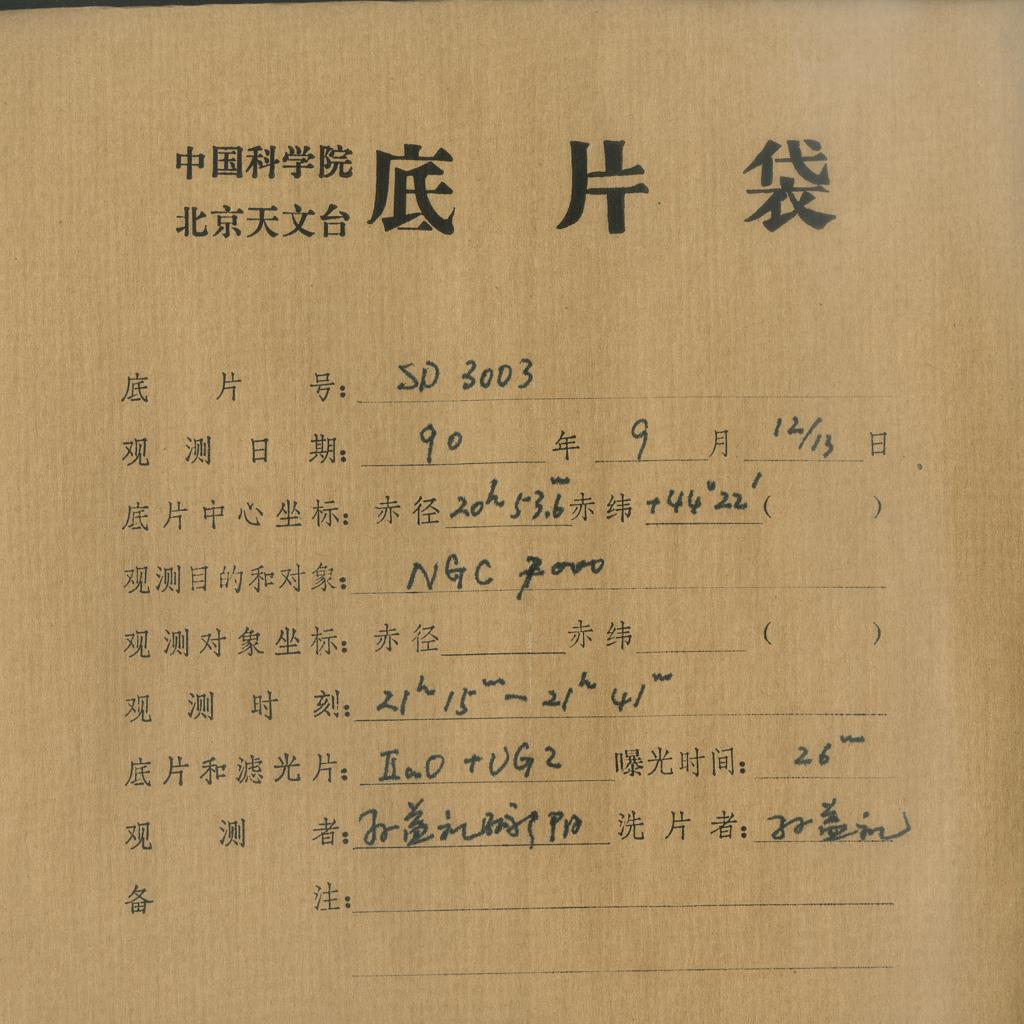 中国科学院
北京天文台
底片袋
底片号: SD 3003
观测日期: 90 年 9 月 12/13 日
底片中心坐标: 赤径 20h 53.6m 赤纬 +44°22' ( )
观测目的和对象: NGC 7000
观测对象坐标: 赤径 赤纬 ( )
观测时刻: 21h 15m — 21h 41m
底片和滤光片: IIaO + UG2 曝光时间: 26m
观测者: 孙益礼 洗片者: 孙益礼
备注: